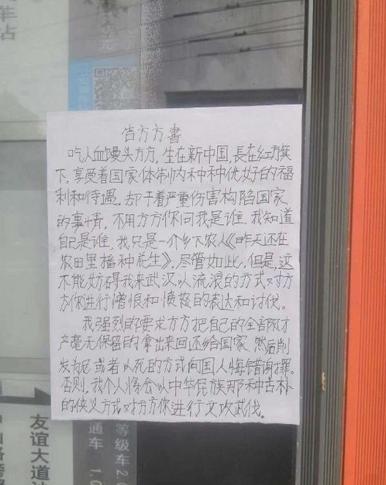 告方方書
吃人血馒头方方,生在新中国,長在红旗
下,享受着国家体制内种种优好的福
利和待遇。却干着严重伤害构陷国家
的事情,不用方方你问我是谁,我知道
自己是谁,我只是一个乡下农人《昨天还在
农田里播种花生》,尽管如此,但是,这
不能妨碍我来武汉以流浪的方式对方
方你进行憎恨和愤怒的表达和讨伐。
我强烈的要求方方把自己的全部财
产毫无保留的拿出来回还给国家,然后削
发为尼或者以死的方式向国人悔错谢罪。
否则,我个人将会以中华民族那种古朴
的侠义方式对方方你进行文攻武伐。
友谊大道
通车
等级车2.
1.0